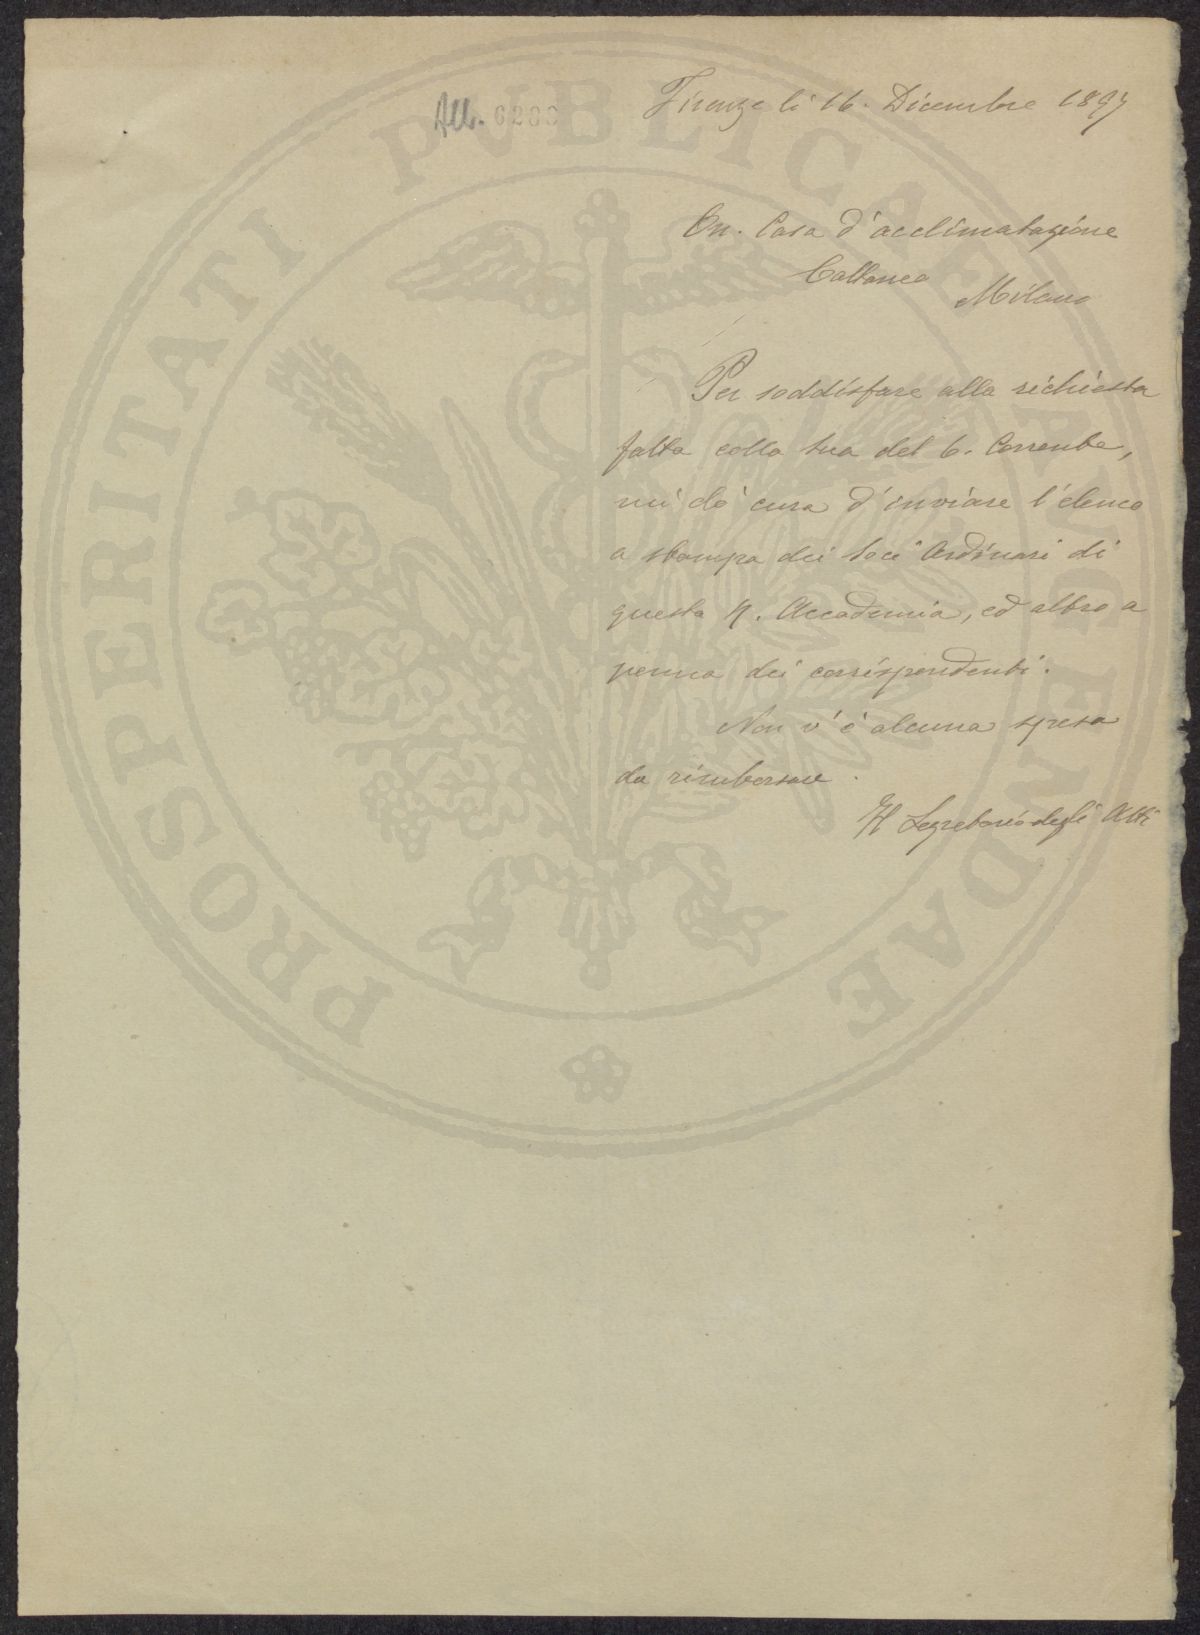 All. 6280
Firenze li 16. Dicembre 1897
On. Casa d'acclimatazione
Cattaneo
Milano
Per soddisfare alla richiesta
fatta colla sua del 6. Corrente,
mi dò cura d'inviare l'elenco
a stampa dei Soci Ordinari di
questa R. Accademia, ed altro a
penna dei corrispondenti.
Non v'è alcuna spesa
da rimborsare.
Il Segretario degli Atti
PROSPERITATI PVBLICAE AVGENDAE